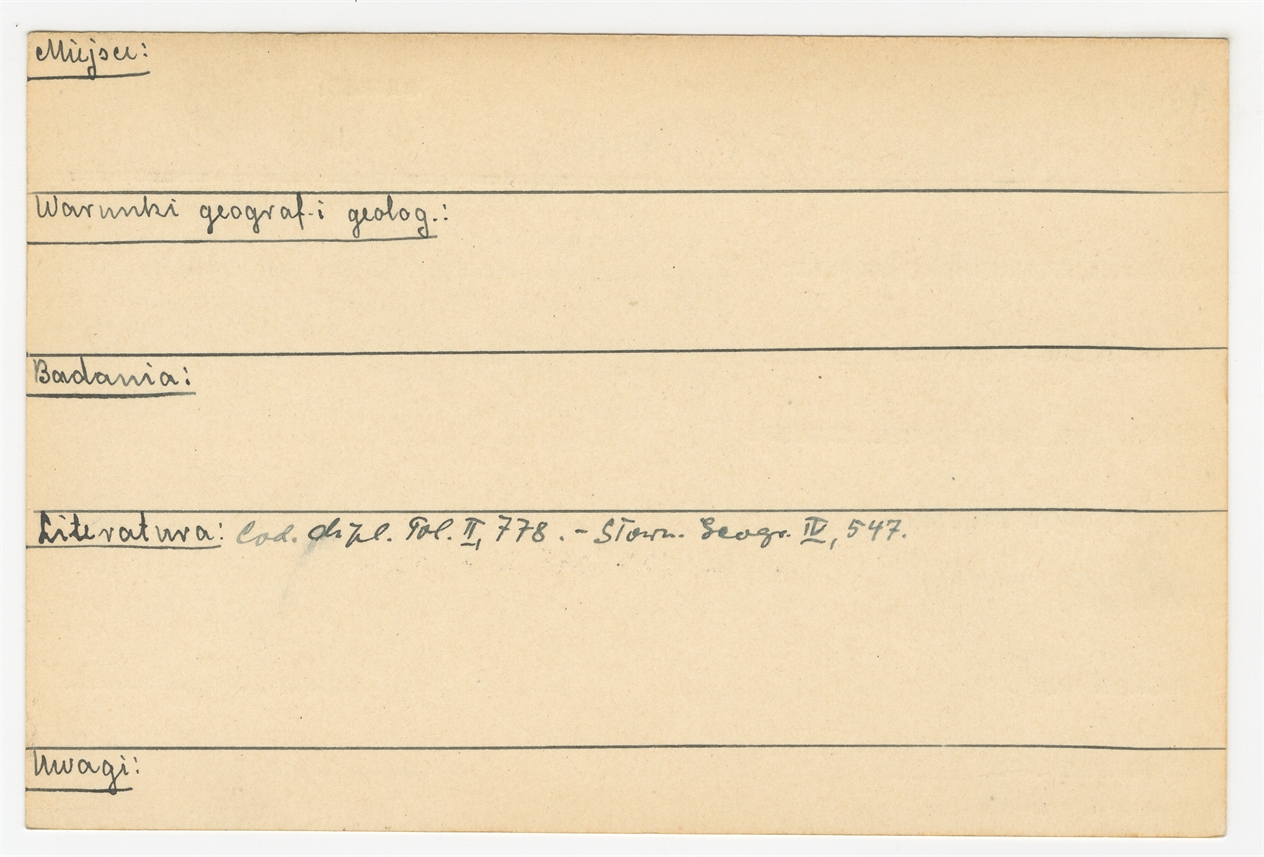 Miejsce:
Warunki geograf. i geolog.:
Badania:
Literatura: Cod. dipl. Pol. II, 778. - Słown. Geogr. IV, 547.
Uwagi: